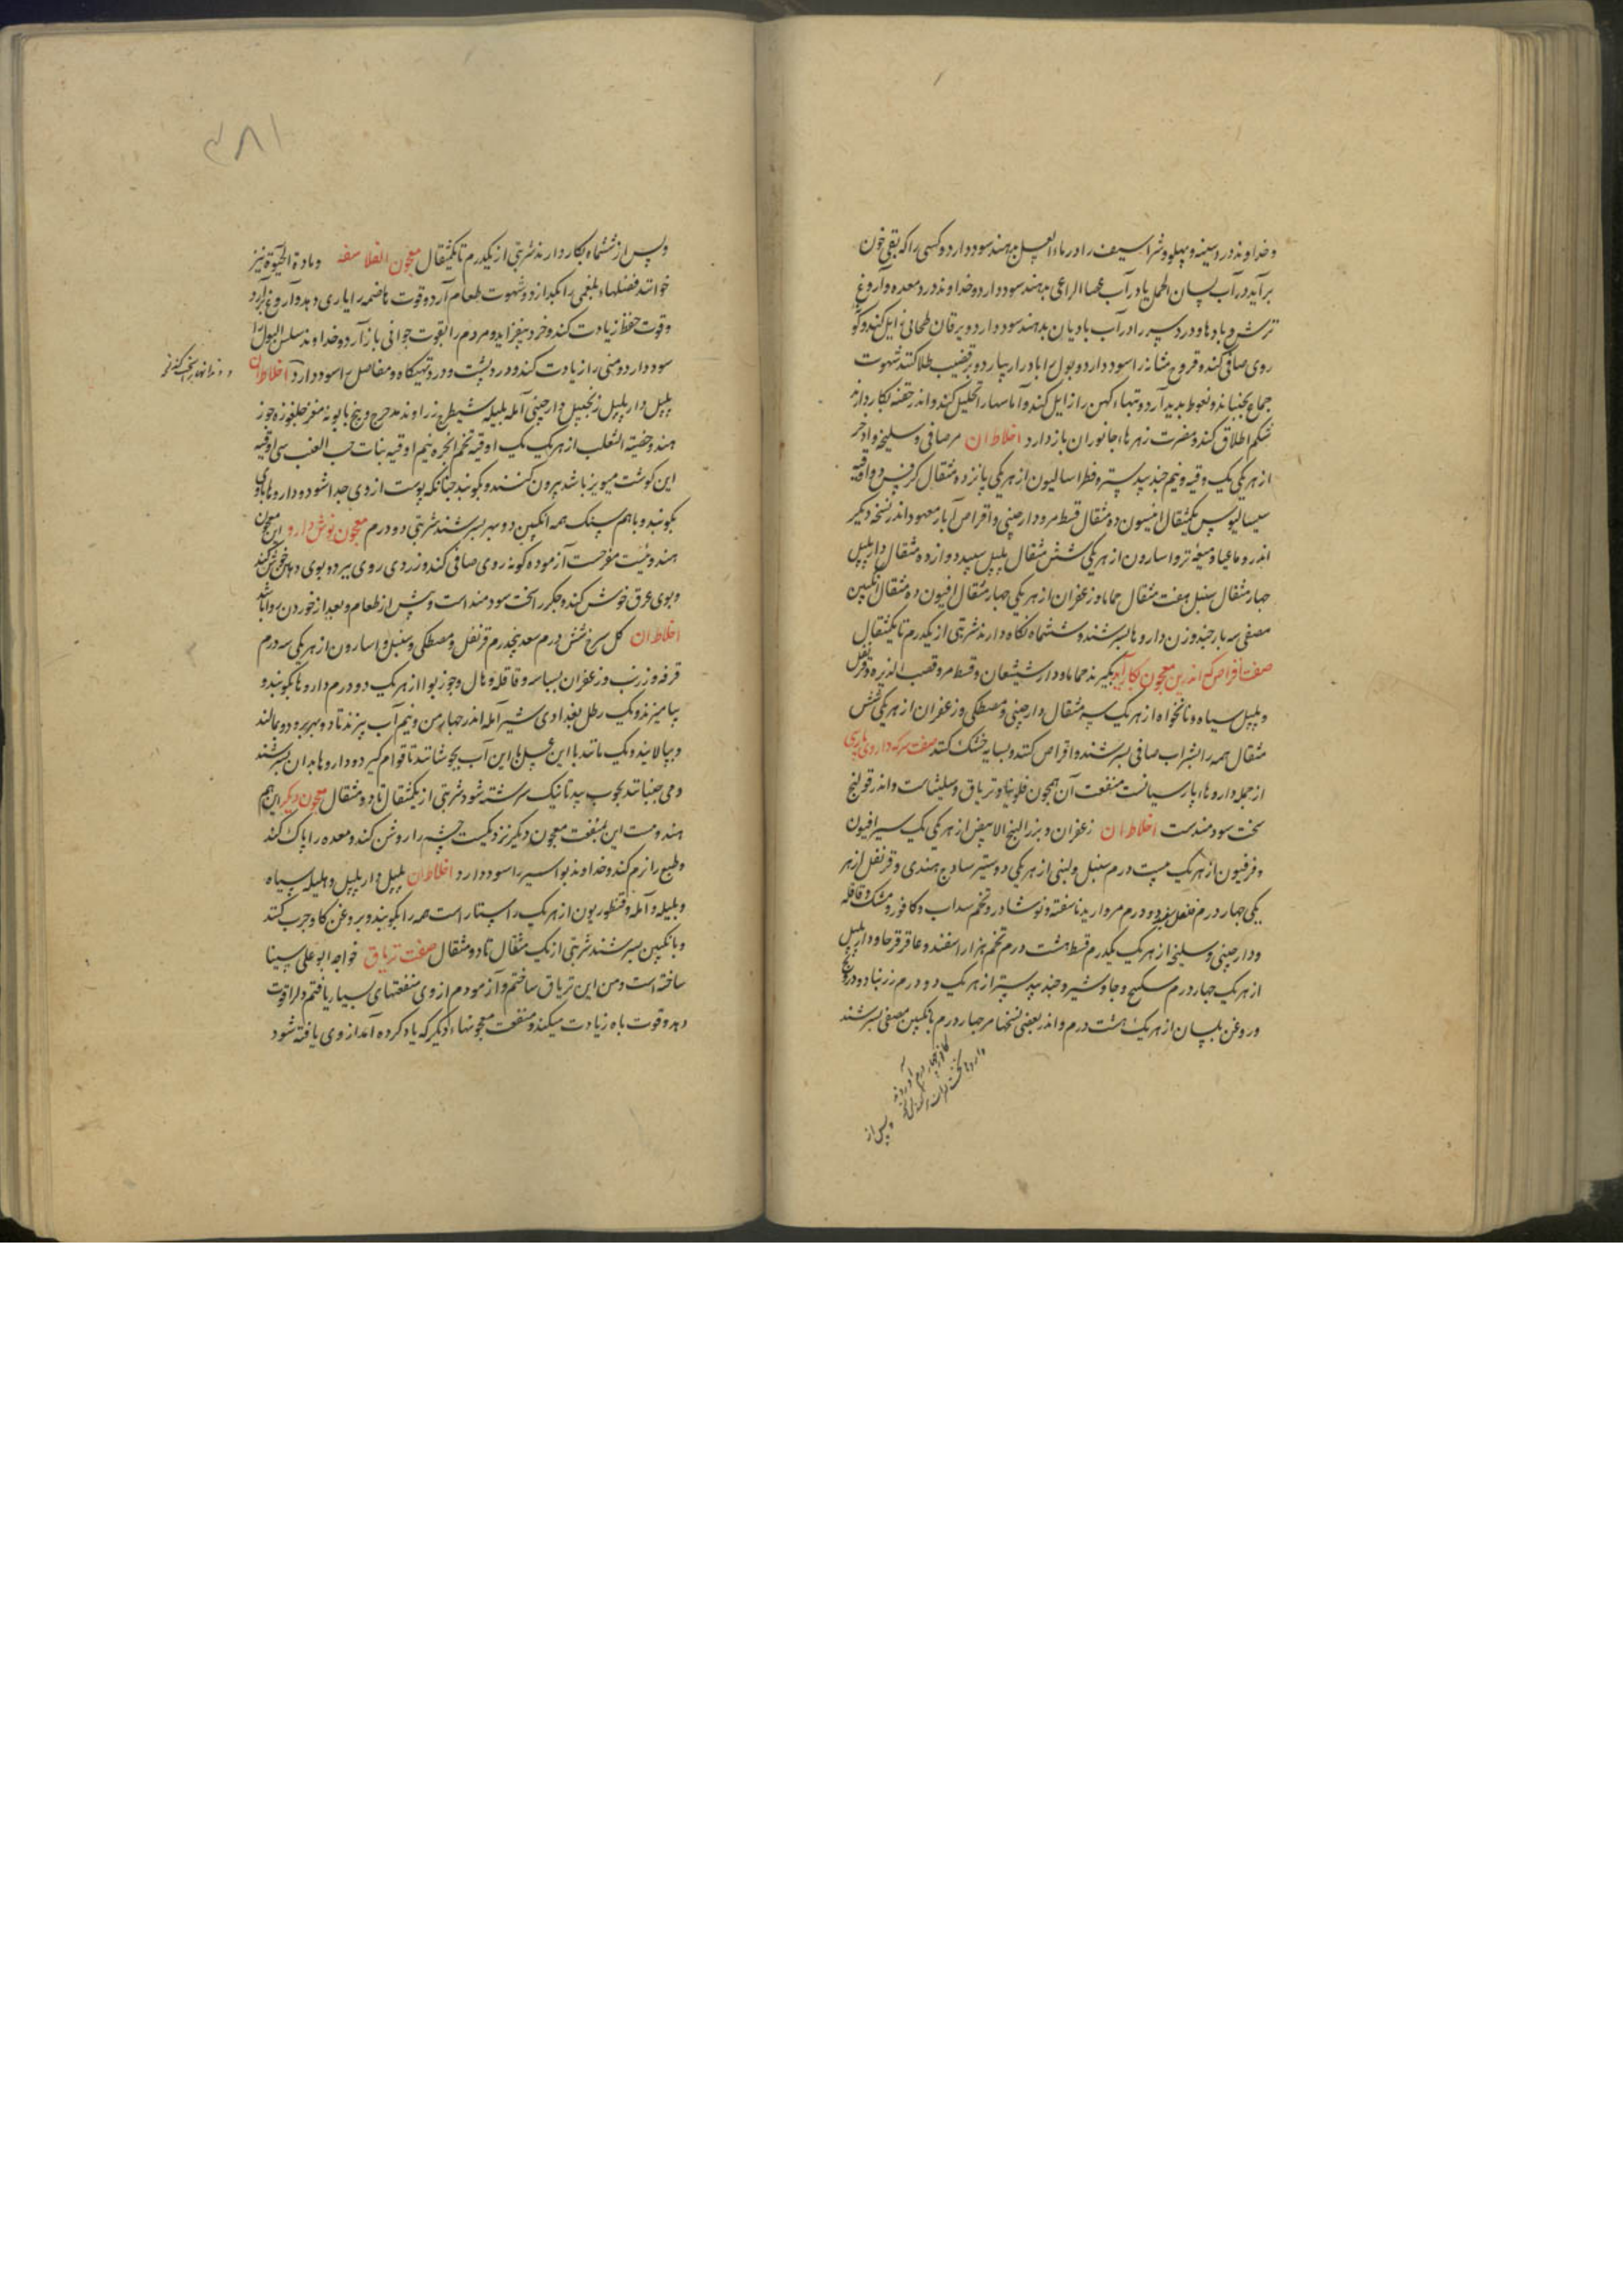 و خداوند درد سینه و پهلو و شراسیف را در ماء العسل بدهند سود دارد و کسی را که بقی خون
برآید در آب لسان الحمل یا در آب عصا الراعی بدهند سود دارد و خداوند درد معده و آروغ
ترش و بادها و درد سپرز را در آب بادیان بدهند سود دارد و یرقان طحالی زایل کند و کونه
روی صافی کند و قروح مثانه را سود دارد و بول و را ادرار پیارد و بر قضیب طلا کنند شهوت
جماع بجنباند و نعوظ بدید آرد و تبهاء کهن را زایل کند و آماسها را تحلیل کند و اندر حقنه بکار دارند
شکم اطلاق کند و مضرت زهرهاء جانوران باز دارد اخلاط ان مر صافی و سلیخه و اذخر
از هر یکی یک وقیه و نیم جند بیدستر و فطراسالیون از هر یکی پانزده مثقال کرفس دو اوقیه
سیسالیوس یکمثقال انیسون ده مثقال قسط مر و دارچینی و اقراص آبار معهود اندر نسخه دیکر
اندروماخیا و میعه تر و اسارون از هر یکی شش مثقال پلپل سپید دوازده مثقال دارپلپل
چهار مثقال سنبل هفت مثقال حماما و زعفران از هر یکی چهار مثقال افیون ده مثقال انکبین
مصفی سه بار چند وزن داروها بسرشند و ششماه نکاه دارند شربتی از یکدرم تا یکمثقال
صفت اقراص که اندرین معجون بکار آید بکیرند حماما و دارشیشعان و قسط مر و قصب الذریره و قرنفل
و پلپل سیاه و نانخواه از هر یک سه مثقال دارچینی و مصطکی و زعفران از هر یکی شش
مثقال همه را بشراب صافی بسرشند و اقراص کنند و بسایه خشک کنند صفت سرکه داروی پارسی
از جمله داروهاء پارسیانست منفعت آن همچون فلونیا و تریاق و سلیثاست و اندر قولنج
سخت سودمندست اخلاط ان زعفران و بزر البنج الابیض از هر یکی یک سیر افیون
و فرفیون از هر یک بیست درم سنبل و لبنی از هر یکی دو ستیر ساذج هندی و قرنفل از هر
یکی چهار درم فلفل سپید دو درم مروارید ناسفته و نوشادر و تخم سداب و کافور و مشک و قاقله
و دارچینی و سلیخه از هر یک یکدرم قسط هشت درم تخم هزاراسفند و عاقرقرحا و دارپلپل
از هر یک چهار درم سکبینج و جاوشیر و جند بیدستر از هر یک دو درم زرنباد و درونج
و روغن بلسان از هر یک هشت درم و اندر بعضی نسخها مر چهار درم بانکبین مصفی بسرشند
و پس از
۳۸۱
و پس از ششماه بکار دارند شربتی از یکدرم تا یکمثقال معجون الفلاسفه و مادة الحیوة نیز
خوانند فضلهاء بلغمی را بکدازد و شهوت طعام آرد و قوت هاضمه را یاری دهد و آروغ آرد
و قوت حفظ زیادت کند و خرد بیفزاید و مردم را بقوت جوانی باز آرد و خداوند سلس البول را
سود دارد و منی را زیادت کند و درد پشت و درد تهیکاه و مفاصل را سود دارد اخلاط ان
پلپل دارپلپل زنجبیل دارچینی آمله بلیله شیطرج زراوند مدحرج و بیخ بابونه مغز جلغوزه جوز
هند و خصیة الثعلب از هر یک یک اوقیه تخم انجره نیم اوقیه بنات حب العنب سی اوقیه
این کوشت میویز باشد بیرون کنند و بکوبند چنانکه پوست از وی جدا شود و داروها با وی
بکوبند و با هم سنک همه انکبین دو بهر بسرشند شربتی دو درم معجون نوش دارو این معجون
هندویست مفرحست آزموده کونه روی صافی کند و زردی روی ببرد و بوی دهان خوش کند
و بوی عرق خوش کند و جکر را سخت سودمند است و پیش از طعام و بعد از خوردن روا باشد
اخلاط ان کل سرخ شش درم سعد پنجدرم قرنفل و مصطکی و سنبل و اسارون از هر یکی سه درم
قرفه و زرنب و زعفران بسباسه و قاقله و هال و جوزبوا از هر یک دو درم داروها بکوبند و
بیامیزند و یک رطل بغدادی شیر آمله اندر چهار من و نیم آب بپزند تا دو بهر برود و بمالند
و بپالایند و یک من قند با این عسل با این آب بجوشانند تا قوام کیرد و داروها بدان بسرشند
و می جنبانند بچوب بید تا نیک سرشته شود شربتی از یکمثقال تا دو مثقال معجون دیکر این هم
هندویست این بمنفعت معجون دیکر نزدیکست چشم را روشن کند و معده را پاک کند
و طبع را نرم کند و خداوند بواسیر را سود دارد اخلاط ان پلپل دارپلپل و هلیله سیاه
و بلیله و آمله و قنطوریون از هر یک راستاراست همه را بکوبند و بروغن کاو چرب کنند
و بانکبین بسرشند شربتی از یک مثقال تا دو مثقال صفت تریاق خواجه ابو علی سینا
ساخته است و من این تریاق ساختم و آزمودم از وی منفعتهای بسیار یافتم دل را قوت
دهد و قوت باه زیادت میکند و منفعت معجونهاء دیکر که یاد کرده آمد از وی یافته شود